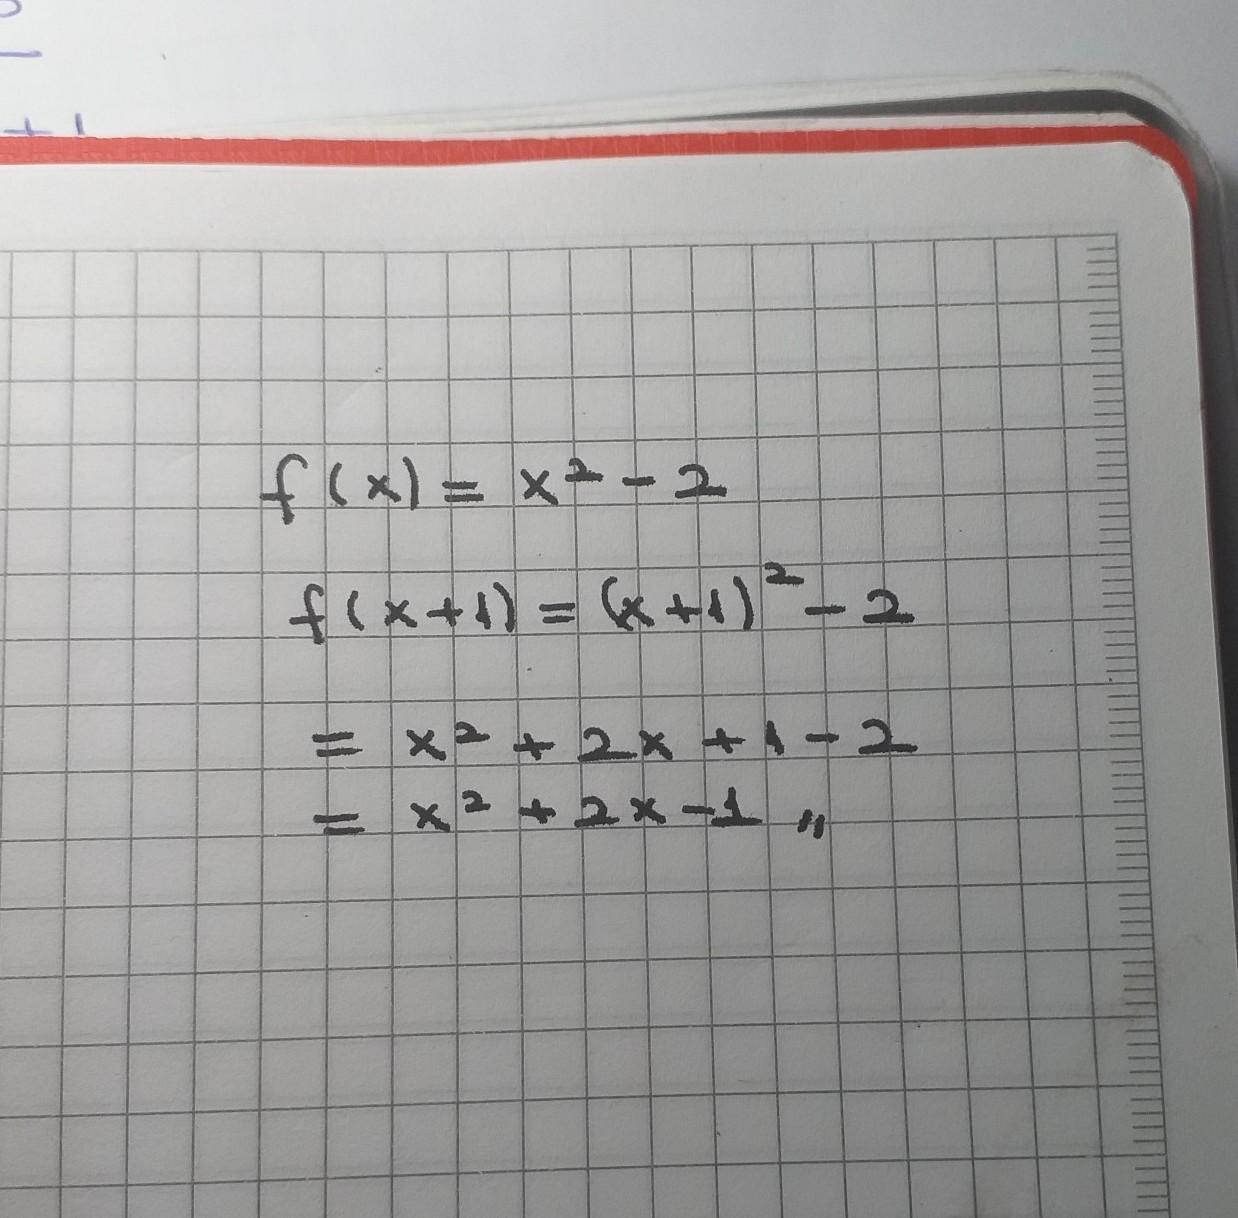 f(x) = x² - 2
f(x+1) = (x+1)² - 2
= x² + 2x + 1 - 2
= x² + 2x - 1 〃